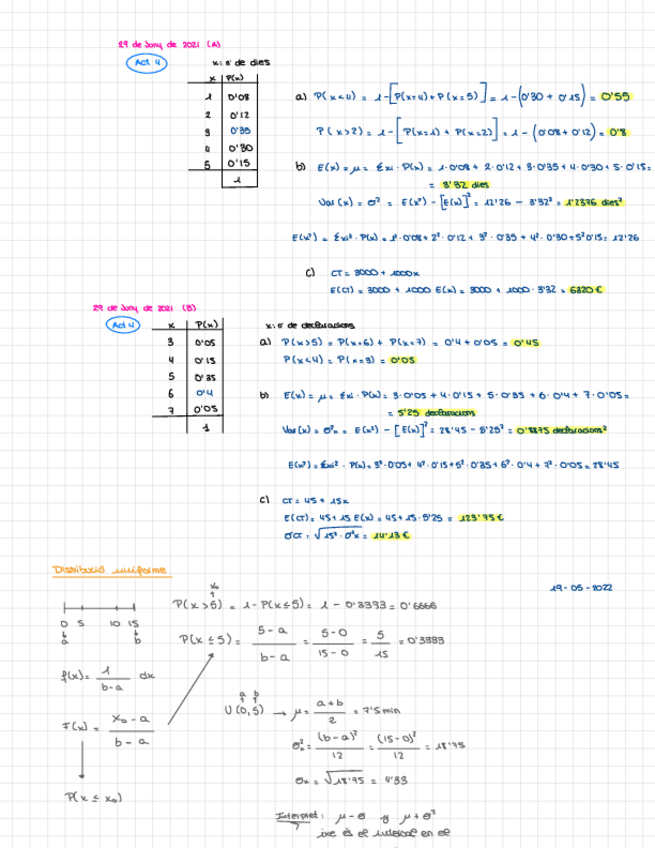 29 de Juny de 2021 (A)
Act 4
x: nº de dies
x P(x)
1 0'08
2 0'12
3 0'35
4 0'30
5 0'15
1
a) P(x<4) = 1-[P(x=4)+P(x=5)] = 1-(0'30+0'15) = 0'55
P(x>2) = 1-[P(x=1) + P(x=2)] = 1-(0'08+0'12) = 0'8
b) E(x) = μ = Σxi · P(x) = 1·0'08 + 2·0'12 + 3·0'35 + 4·0'30 + 5·0'15 =
= 3'32 dies
Var(x) = σ² = E(x²) - [E(x)]² = 12'26 - 3'32² = 1'2376 dies²
E(x²) = Σxi² · P(x) = 1²·0'08 + 2²·0'12 + 3²·0'35 + 4²·0'30 + 5²·0'15 = 12'26
c) CT = 3000 + 1000x
E(CT) = 3000 + 1000 E(x) = 3000 + 1000 · 3'32 = 6320 €
29 de Juny de 2021 (B)
Act 4
x P(x)
3 0'05
4 0'15
5 0'35
6 0'4
7 0'05
1
x: nº de declaracions
a) P(x>5) = P(x=6) + P(x=7) = 0'4 + 0'05 = 0'45
P(x<4) = P(x=3) = 0'05
b) E(x) = μ = Σxi · P(x) = 3·0'05 + 4·0'15 + 5·0'35 + 6·0'4 + 7·0'05 =
= 5'25 declaracions
Var(x) = σ²x = E(x²) - [E(x)]² = 28'45 - 5'25² = 0'8875 declaracions²
E(x²) = Σxi² · P(x) = 3²·0'05 + 4²·0'15 + 5²·0'35 + 6²·0'4 + 7²·0'05 = 28'45
c) CT = 45 + 15x
E(CT) = 45 + 15 E(x) = 45 + 15 · 5'25 = 123'75 €
σCT = √15² · σ²x = 14'13 €
Distribució uniforme
19-05-2022
x₀
P(x>5) = 1-P(x≤5) = 1 - 0'3333 = 0'6666
0 5 10 15
a b
P(x≤5) = 5-a / b-a = 5-0 / 15-0 = 5 / 15 = 0'3333
f(x) = 1 / b-a dx
a b
U(0,5) → μ = a+b / 2 = 7'5 min
F(x) = x₀-a / b-a
σ²x = (b-a)² / 12 = (15-0)² / 12 = 18'75
σx = √18'75 = 4'33
P(x≤x₀)
Interpret: μ-σ y μ+σ²
ixe és el interval en el